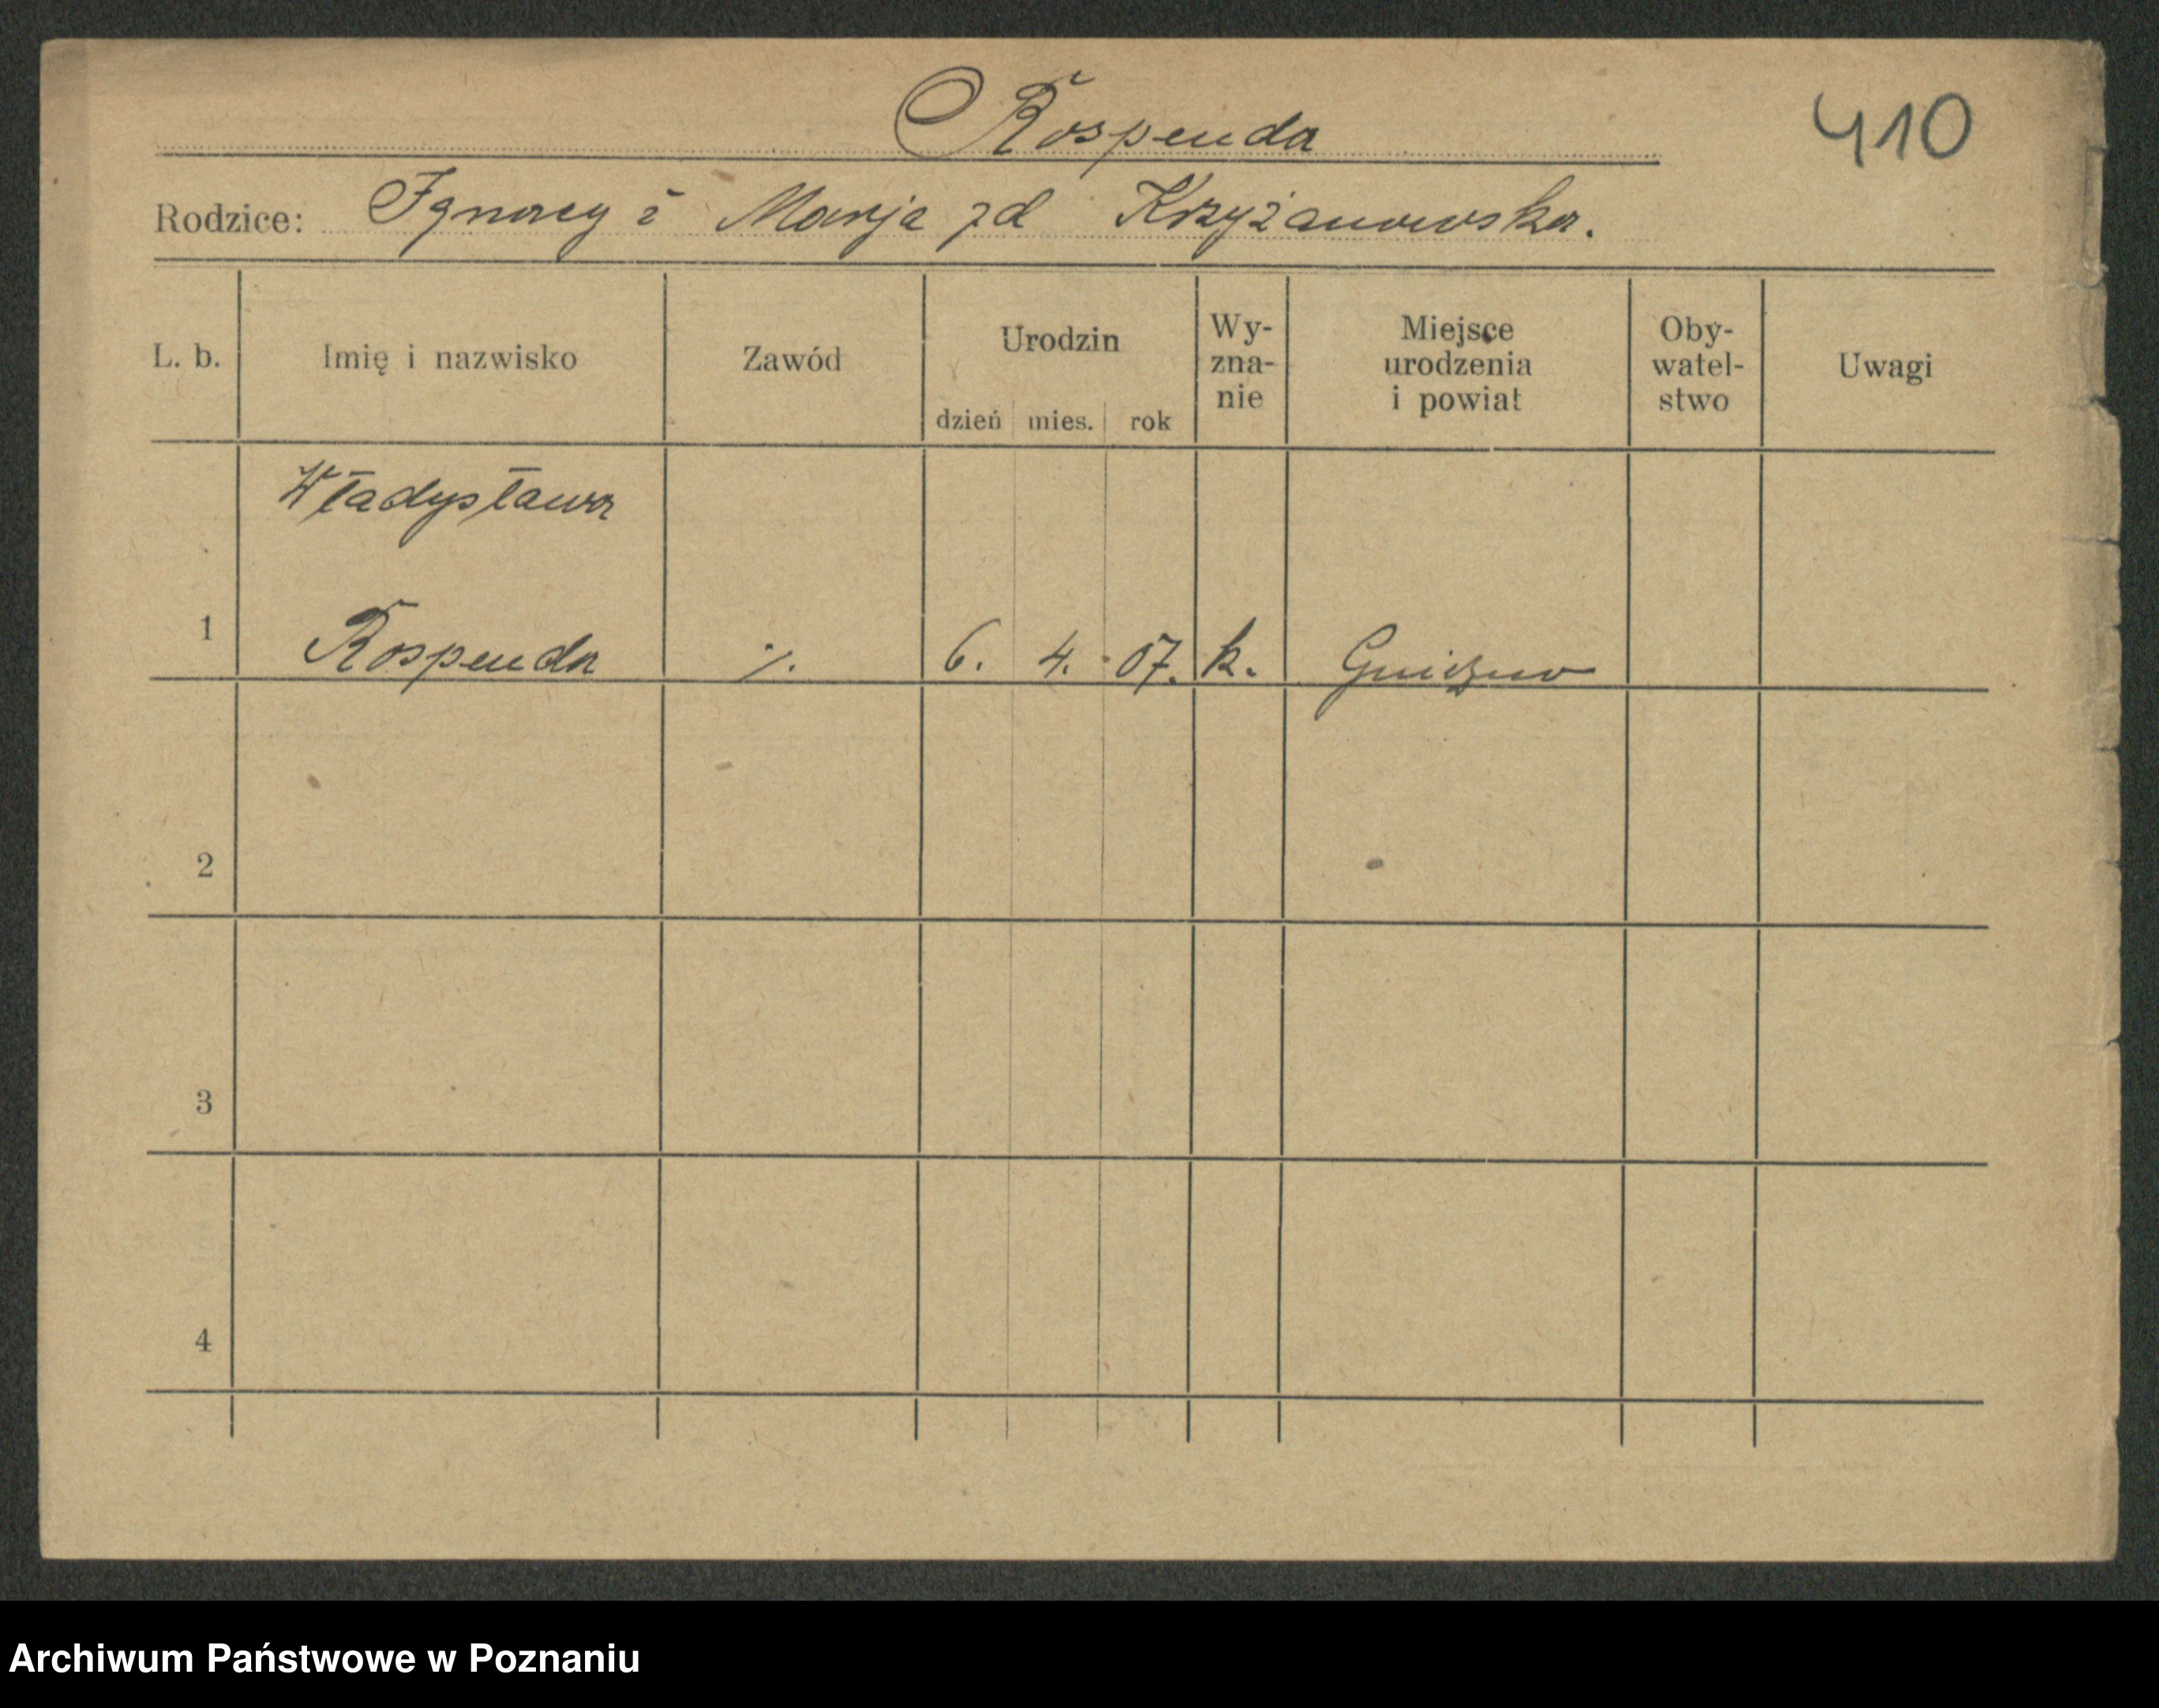 Rospenda
410
Rodzice: Ignacy i Marja zd Krzyżanowska.
L. b. Imię i nazwisko Zawód Urodzin dzień mies. rok Wy-zna-nie Miejsce urodzenia i powiat Oby-watel-stwo Uwagi
Władysława
1 Rospenda ·/. 6. 4. 07. k. Gniezno
2
3
4
Archiwum Państwowe w Poznaniu